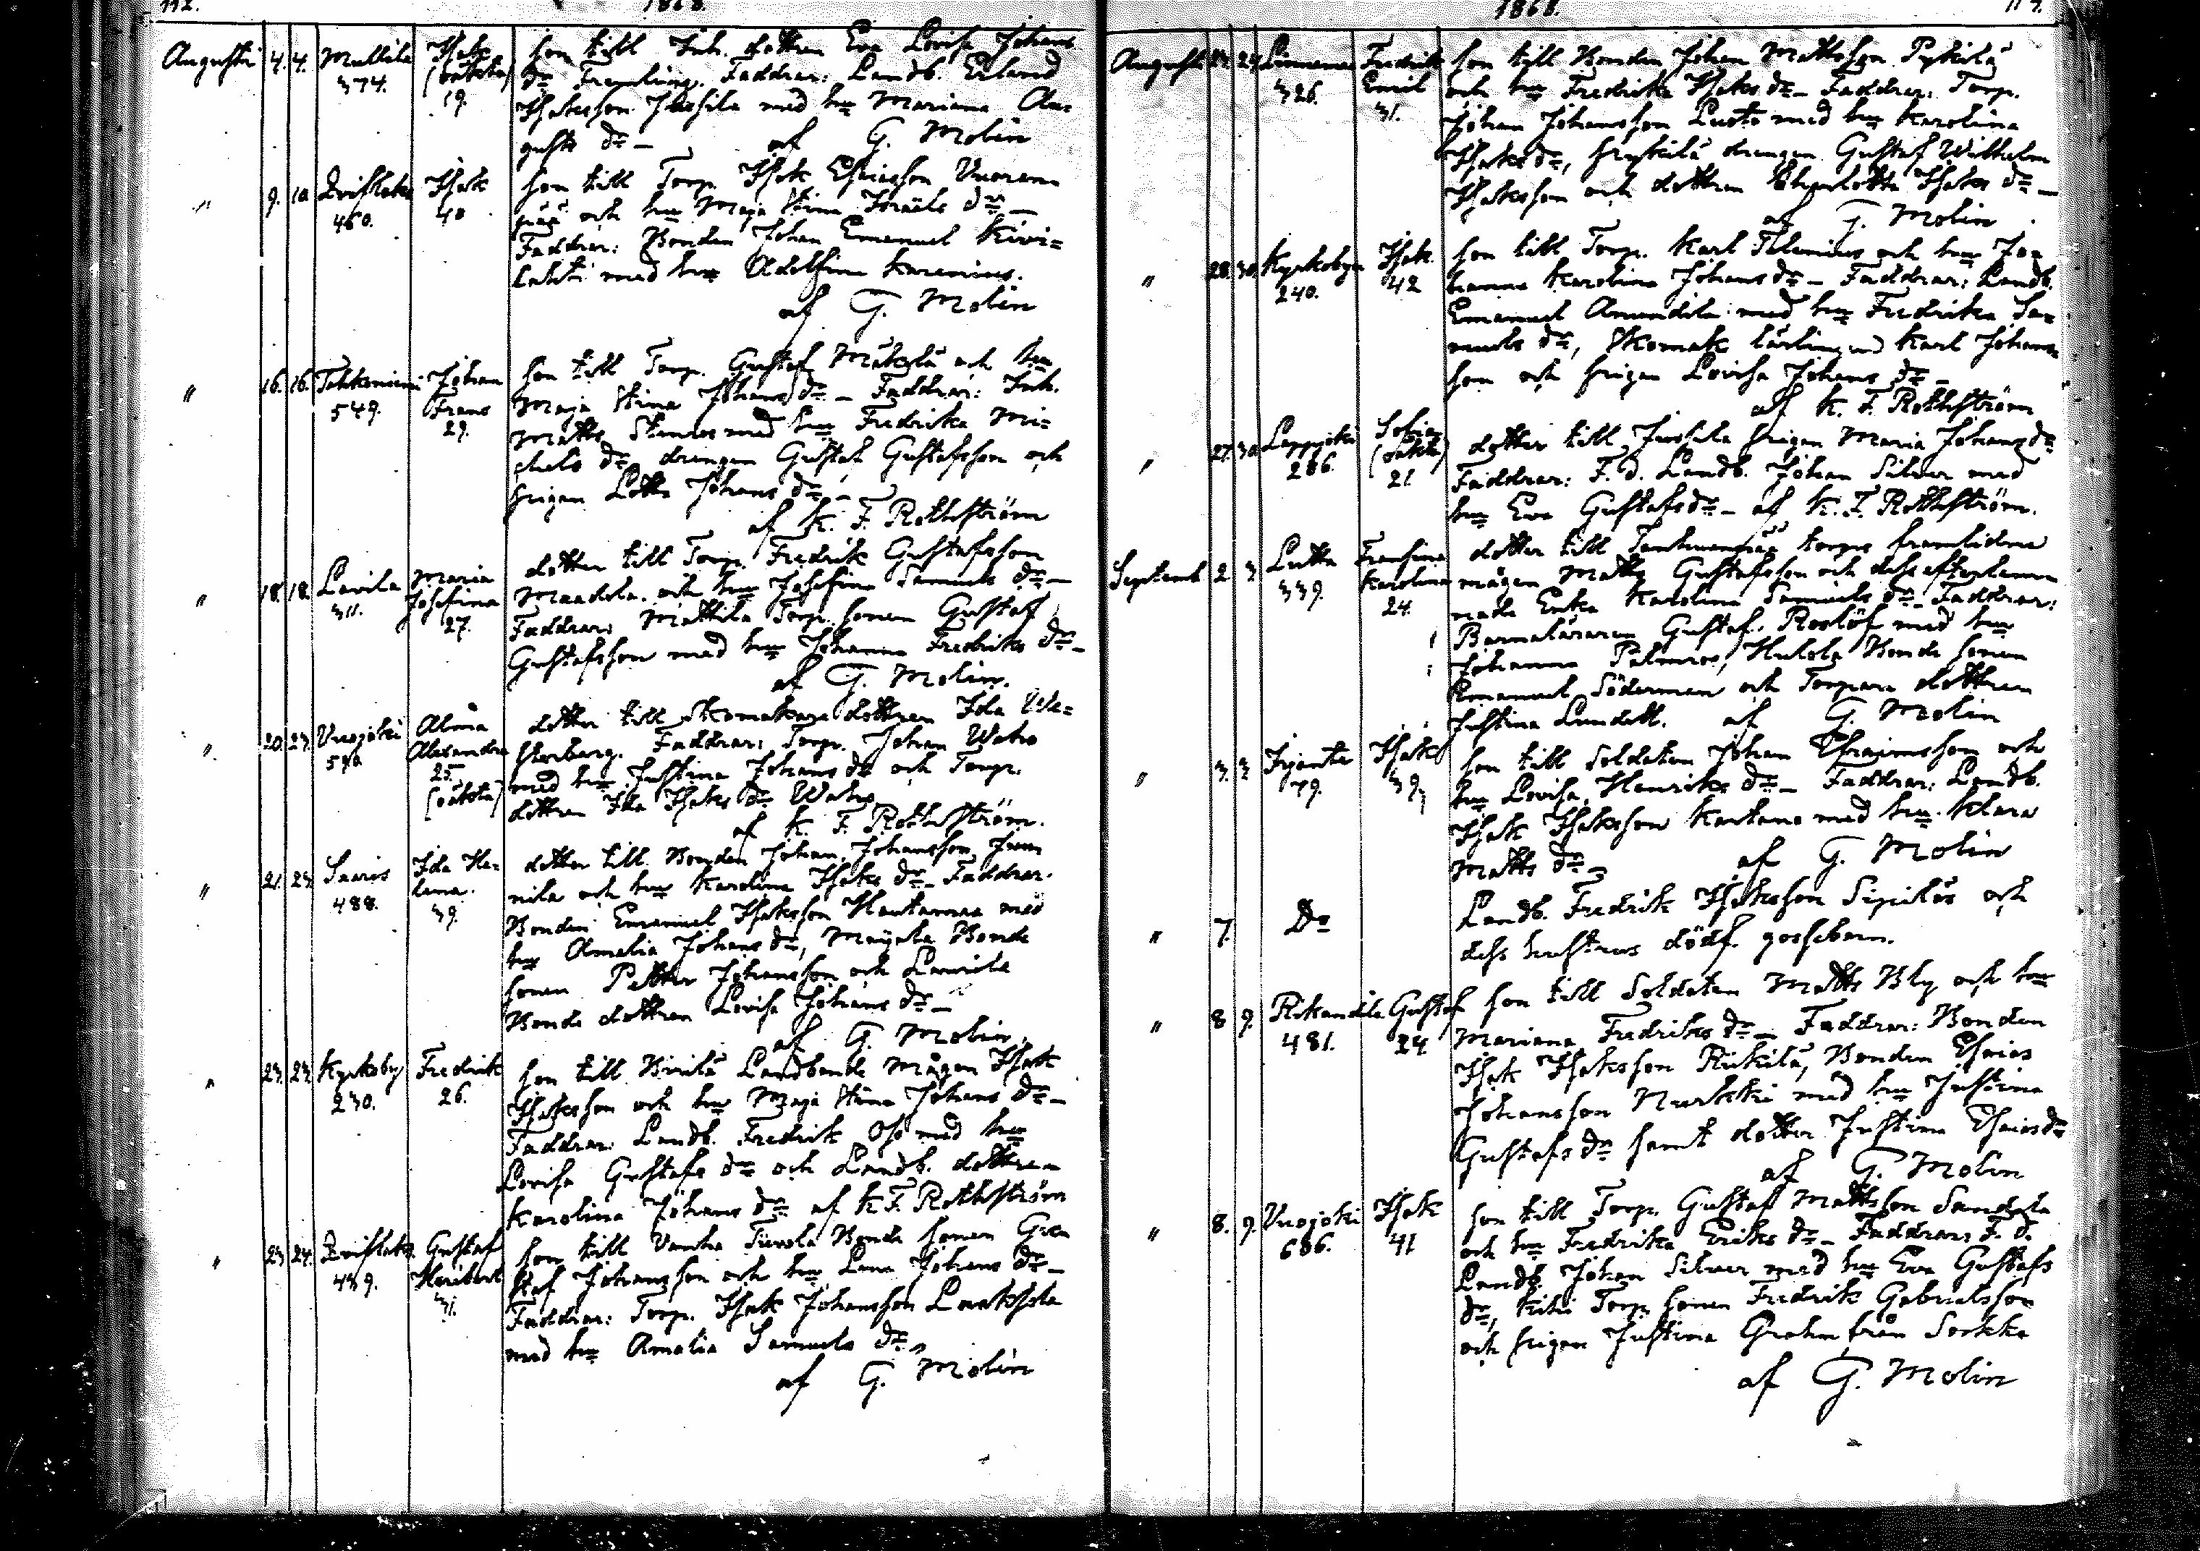 112. 1868.
Augusti 4. 4. Mullila Isak son till Inh. dottren Eva Lovisa Johans
374. (oäkta) dr Fremling. Faddrar: Landb. Erland
19. Isaksson Jussila med hu Mariana Au-
gusts dr — af G. Molin
" 9. 10 Isak son till Torp. Isak Esaiasson Vuoren
460. 40 pää och hu Maja Stina Israels dr —
Faddrar: Bonden Johan Emanuel Kivi-
lahti med hu Adolfina Karenius.
af G. Molin
" 16. 16. Johan son till Torp. Gustaf Mäkelä och hu
549. Frans Maja Stina Johans dr — Faddrar: Inh.
29. Matts med hu Fredrika Mi-
chels dr drengen Gustaf Gustafsson och
pigan Lotta Johans dr —
af K. F. Rothström
" 18. 18. Lavila Maria dotter till Torp. Fredrik Gustafsson
311. Josefina och hu Josefina Samuels dr —
27. Faddrar: Mattila Torp. sonen Gustaf
Gustafsson med hu Johanna Fredriks dr —
af G. Molin.
" 20. 23. Vuojoki Alma dotter till Skomakare dottren Ida We-
590. Alexandra sterberg. Faddrar: Torp. Johan Waho
25. med hu Justina Johans dr och Torp.
(oäkta) dottren Ida Isaks dr Waho
af K. F. Rothström.
" 21. 23. Saaris Ida He- dotter till Bonden Johan Johansson Jun
488. lena. nila och hu Karolina Isaks dr — Faddrar.
39. Bonden Emanuel Isaksson Hautamaa med
hu Amalia Johans dr, Bonde
sonen Petter Johansson och Laurila
Bonde dottren Lovisa Johans dr —
af G. Molin.
" 23. 23. Kyrkoby Fredrik son till Landbonde mågen Isak
230. 26. Isaksson och hu Maja Stina Johans dr —
Faddrar: Landb. Fredrik med hu
Lovisa Gustafs dr och Landb. dottren
Karolina Johans dr af K. F. Rothström
" 23 24. Gustaf son till Vanha Tuvola Bonde sonen Gu
439. Heribert staf Johansson och hu Lena Johans dr —
31. Faddrar: Torp. Isak Johansson
med hu Amalia Samuels dr.
af G. Molin
1868.
Augusti Linnamaa Fredrik son till Bonden Johan Mattsson
326. Emil och hu Fredrika Isaks dr — Faddrar: Torp.
31. Johan Johansson Lusto med hu Karolina
Isaks dr, drengen Gustaf Wilhelm
Isaksson och dottren Isaks dr —
af G. Molin
" 28. 30. Kyrkoby Isak son till Torp. Karl och hu Jo
240. 42 hanna Karolina Johans dr — Faddrar: Landb.
Emanuel Anundila med hu Fredrika Sa-
muels dr, Skomak lärling Karl Johans
son och pigan Lovisa Johans dr —
af K. F. Rothström
" 27. 30 Lappijoki Sofia dotter till Jussila pigan Maria Johans dr
286. (oäkta) Faddrar: F. d. Landb. Johan Silwer med
21 hu Eva Gustafsdr — af K. F. Rothström.
Septemb 2 3 Lutta Fransina dotter till torps framlidne
339. Karolina mågen Matts Gustafsson och dess efterlem
24. nade Enka Karolina Samuels dr — Faddrar:
Barnaläraren Gustaf Roslöf med hu
Johanna Palmros, Bonde sonen
Emanuel Söderman och Torpare dottren
Justina Lundell. af G. Molin
" 3. 3 Irjanta Isak son till Soldaten Johan Efraimsson och
79. 39 hu Lovisa Henriks dr — Faddrar: Landb.
Isak Isaksson Kaukano med hu Klara
Matts dr — af G. Molin
" 7. Do Landb. Fredrik Isaksson Sipilä och
dess hustrus dödf. gossebarn.
" 8 9. Rikandila Gustaf son till Soldaten Matts Bly och hu
481. 24. Mariana Fredriks dr — Faddrar: Bonden
Isak Isaksson Riikilä, Bonden Esaias
Johansson Nurkki med hu Justina
Gustafs dr samt dotter Justina Esaias dr
af G. Molin
" 8. 9. Vuojoki Isak son till Torp. Gustaf Mattsson Sandola
686. 41 och hu Fredrika Eriks dr — Faddrar: F. d.
Landb. Johan Silwer med hu Eva Gustafs
dr, Torp. sonen Fredrik Gabrielsson
och pigan Justina från Sorkka
af G. Molin